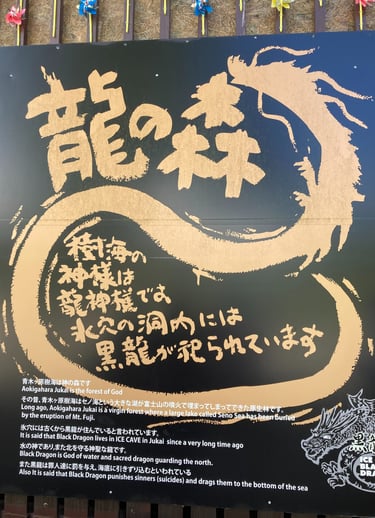 龍の森
樹海の
神様は
龍神様です。
氷穴の洞内には
黒龍が祀られています
青木ヶ原樹海は神の森です
Aokigahara Jukai is the forest of God
その昔、青木ヶ原樹海はセノ海という大きな湖が富士山の噴火で埋まってしまってできた原生林です。
Long ago, Aokigahara Jukai is a virgin forest where a large lake called Seno Sea has been buried
by the eruption of Mt. Fuji.
氷穴には古くから黒龍が住んでいると言われています。
It is said that Black Dragon lives in ICE CAVE in Jukai since a very long time ago
水の神であり、また北を守る神聖な龍です。
Black Dragon is God of water and sacred dragon guarding the north.
また黒龍は罪人達に罰を与え、海底に引きずり込むといわれている
Also It is said that Black Dragon punishes sinners (suicides) and drags them to the bottom of the sea
ICE
BLACK
DRA